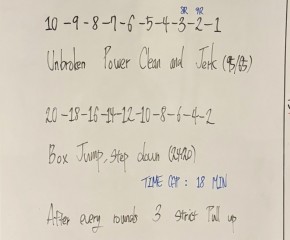 3R 4R
10-9-8-7-6-5-4-3-2-1
Unbroken Power Clean and Jerk (95/65)
20-18-16-14-12-10-8-6-4-2
Box Jump, Step down (24/20)
TIME CAP: 18 MIN
After every rounds 3 strict Pull up